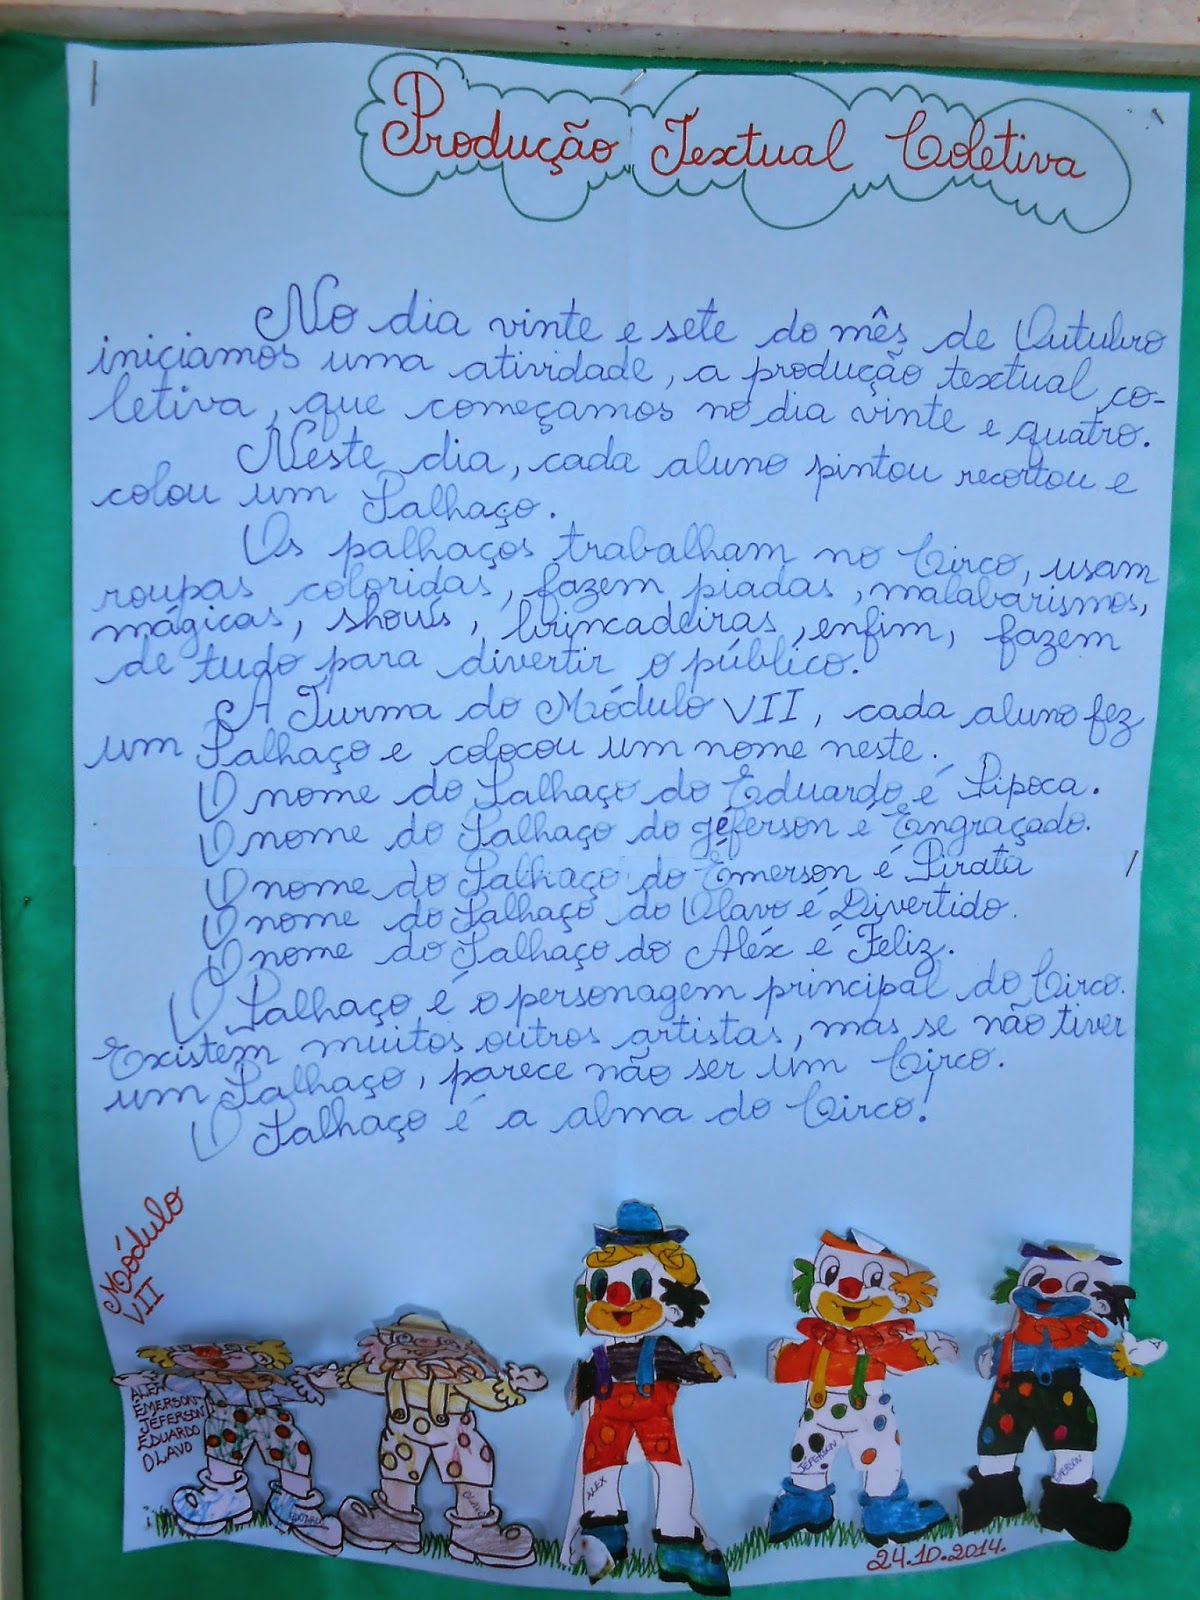 Produção Textual Coletiva
No dia vinte e sete do mês de Outubro
iniciamos uma atividade, a produção textual co-
letiva, que começamos no dia vinte e quatro.
Neste dia, cada aluno pintou recortou e
colou um Palhaço.
Os palhaços trabalham no Circo, usam
roupas coloridas, fazem piadas, malabarismos,
mágicas, shows, brincadeiras, enfim, fazem
de tudo para divertir o público.
A Turma do Módulo VII, cada aluno fez
um Palhaço e colocou um nome neste.
O nome do Palhaço do Eduardo é Pipoca.
O nome do Palhaço do Jéferson é Engraçado.
O nome do Palhaço do Émerson é Pirata
O nome do Palhaço do Olavo é Divertido.
O nome do Palhaço do Aléx é Feliz.
O Palhaço é o personagem principal do Circo.
Existem muitos outros artistas, mas se não tiver
um Palhaço, parece não ser um Circo.
O Palhaço é a alma do Circo!
Módulo
VII
ALEX
ÉMERSON
JÉFERSON
EDUARDO
OLAVO
OLAVO
ALEX
JÉFERSON
24.10.2014.